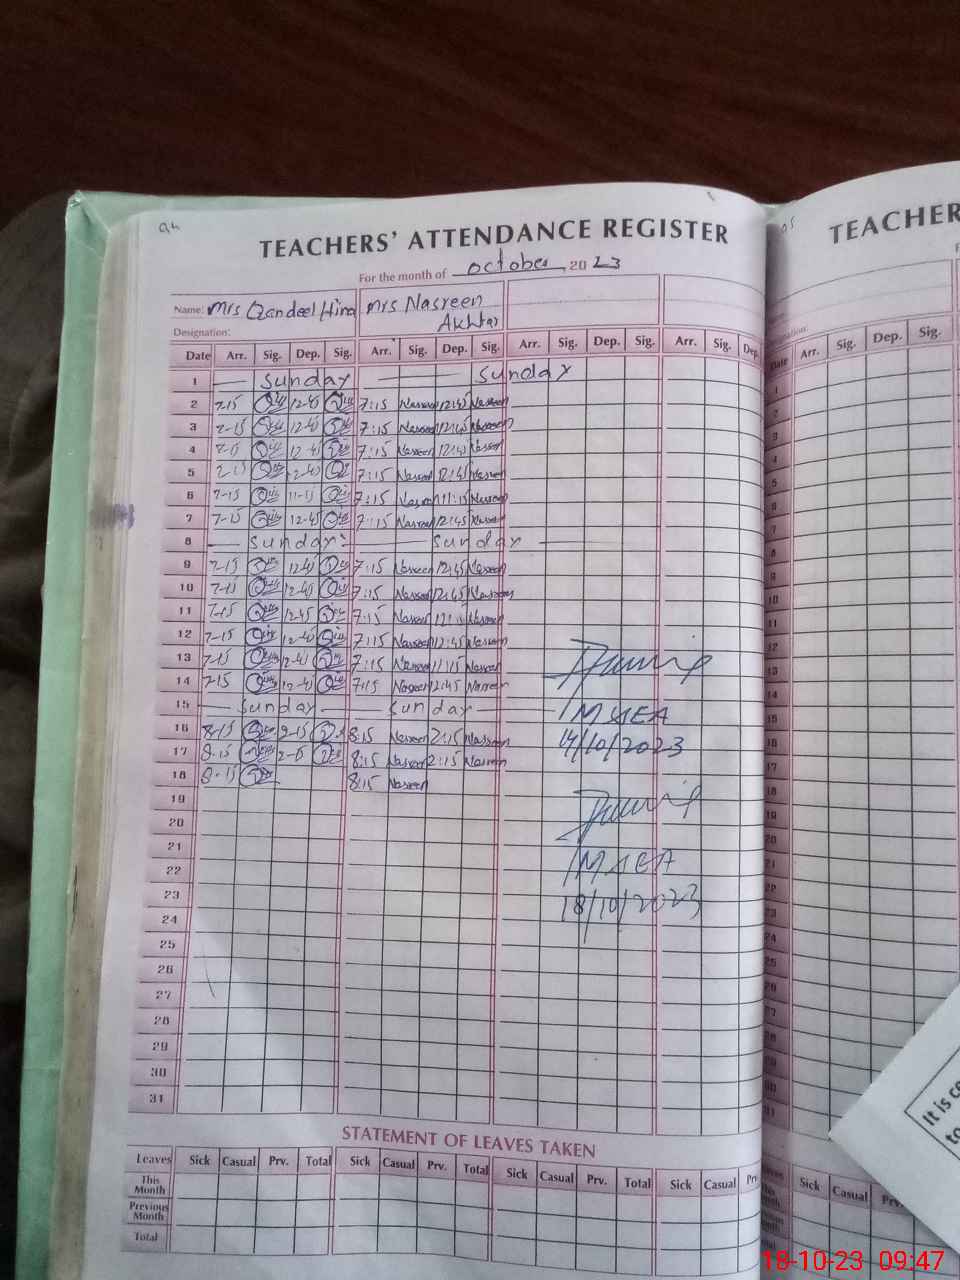 94
TEACHERS' ATTENDANCE REGISTER
For the month of October, 2023
Name: Mrs Qandeel Hina Mrs Nasreen Akhtar
Designation:
Date Arr. Sig. Dep. Sig. Arr. Sig. Dep. Sig. Arr. Sig. Dep. Sig. Arr. Sig. Dep.
1 Sunday Sunday
2 7-15 12-45 7:15 Nasreen 12:45 Nasreen
3 7-15 12-45 7:15 Nasreen 12:45 Nasreen
4 7-15 12-45 7:15 Nasreen 12:45 Nasreen
5 7-15 12-45 7:15 Nasreen 12:45 Nasreen
6 7-15 11-15 7:15 Nasreen 11:15 Nasreen
7 7-15 12-45 7:15 Nasreen 12:45 Nasreen
8 Sunday Sunday
9 7-15 12-45 7:15 Nasreen 12:45 Nasreen
10 7-15 12-45 7:15 Nasreen 12:45 Nasreen
11 7-15 12-45 7:15 Nasreen Nasreen
12 7-15 12-45 7:15 Nasreen 12:45 Nasreen
13 7-15 7:15 Nasreen 11:15 Nasreen
14 7-15 12-45 7:15 Nasreen 12:45 Nasreen
15 Sunday Sunday
16 8-15 2-15 8:15 Nasreen 2:15 Nasreen
17 8-15 2-15 8:15 Nasreen 2:15 Nasreen
18 8-15 8:15 Nasreen
MEA
14/10/2023
MEA
18/10/2023
19
20
21
22
23
24
25
26
27
28
29
30
31
STATEMENT OF LEAVES TAKEN
Leaves Sick Casual Prv. Total Sick Casual Prv. Total Sick Casual Prv. Total Sick Casual Prv
This Month
Previous Month
Total
95
TEACHER
Date Arr. Sig. Dep. Sig.
Sick Casual Prv
It is ce
to
18-10-23 09:47